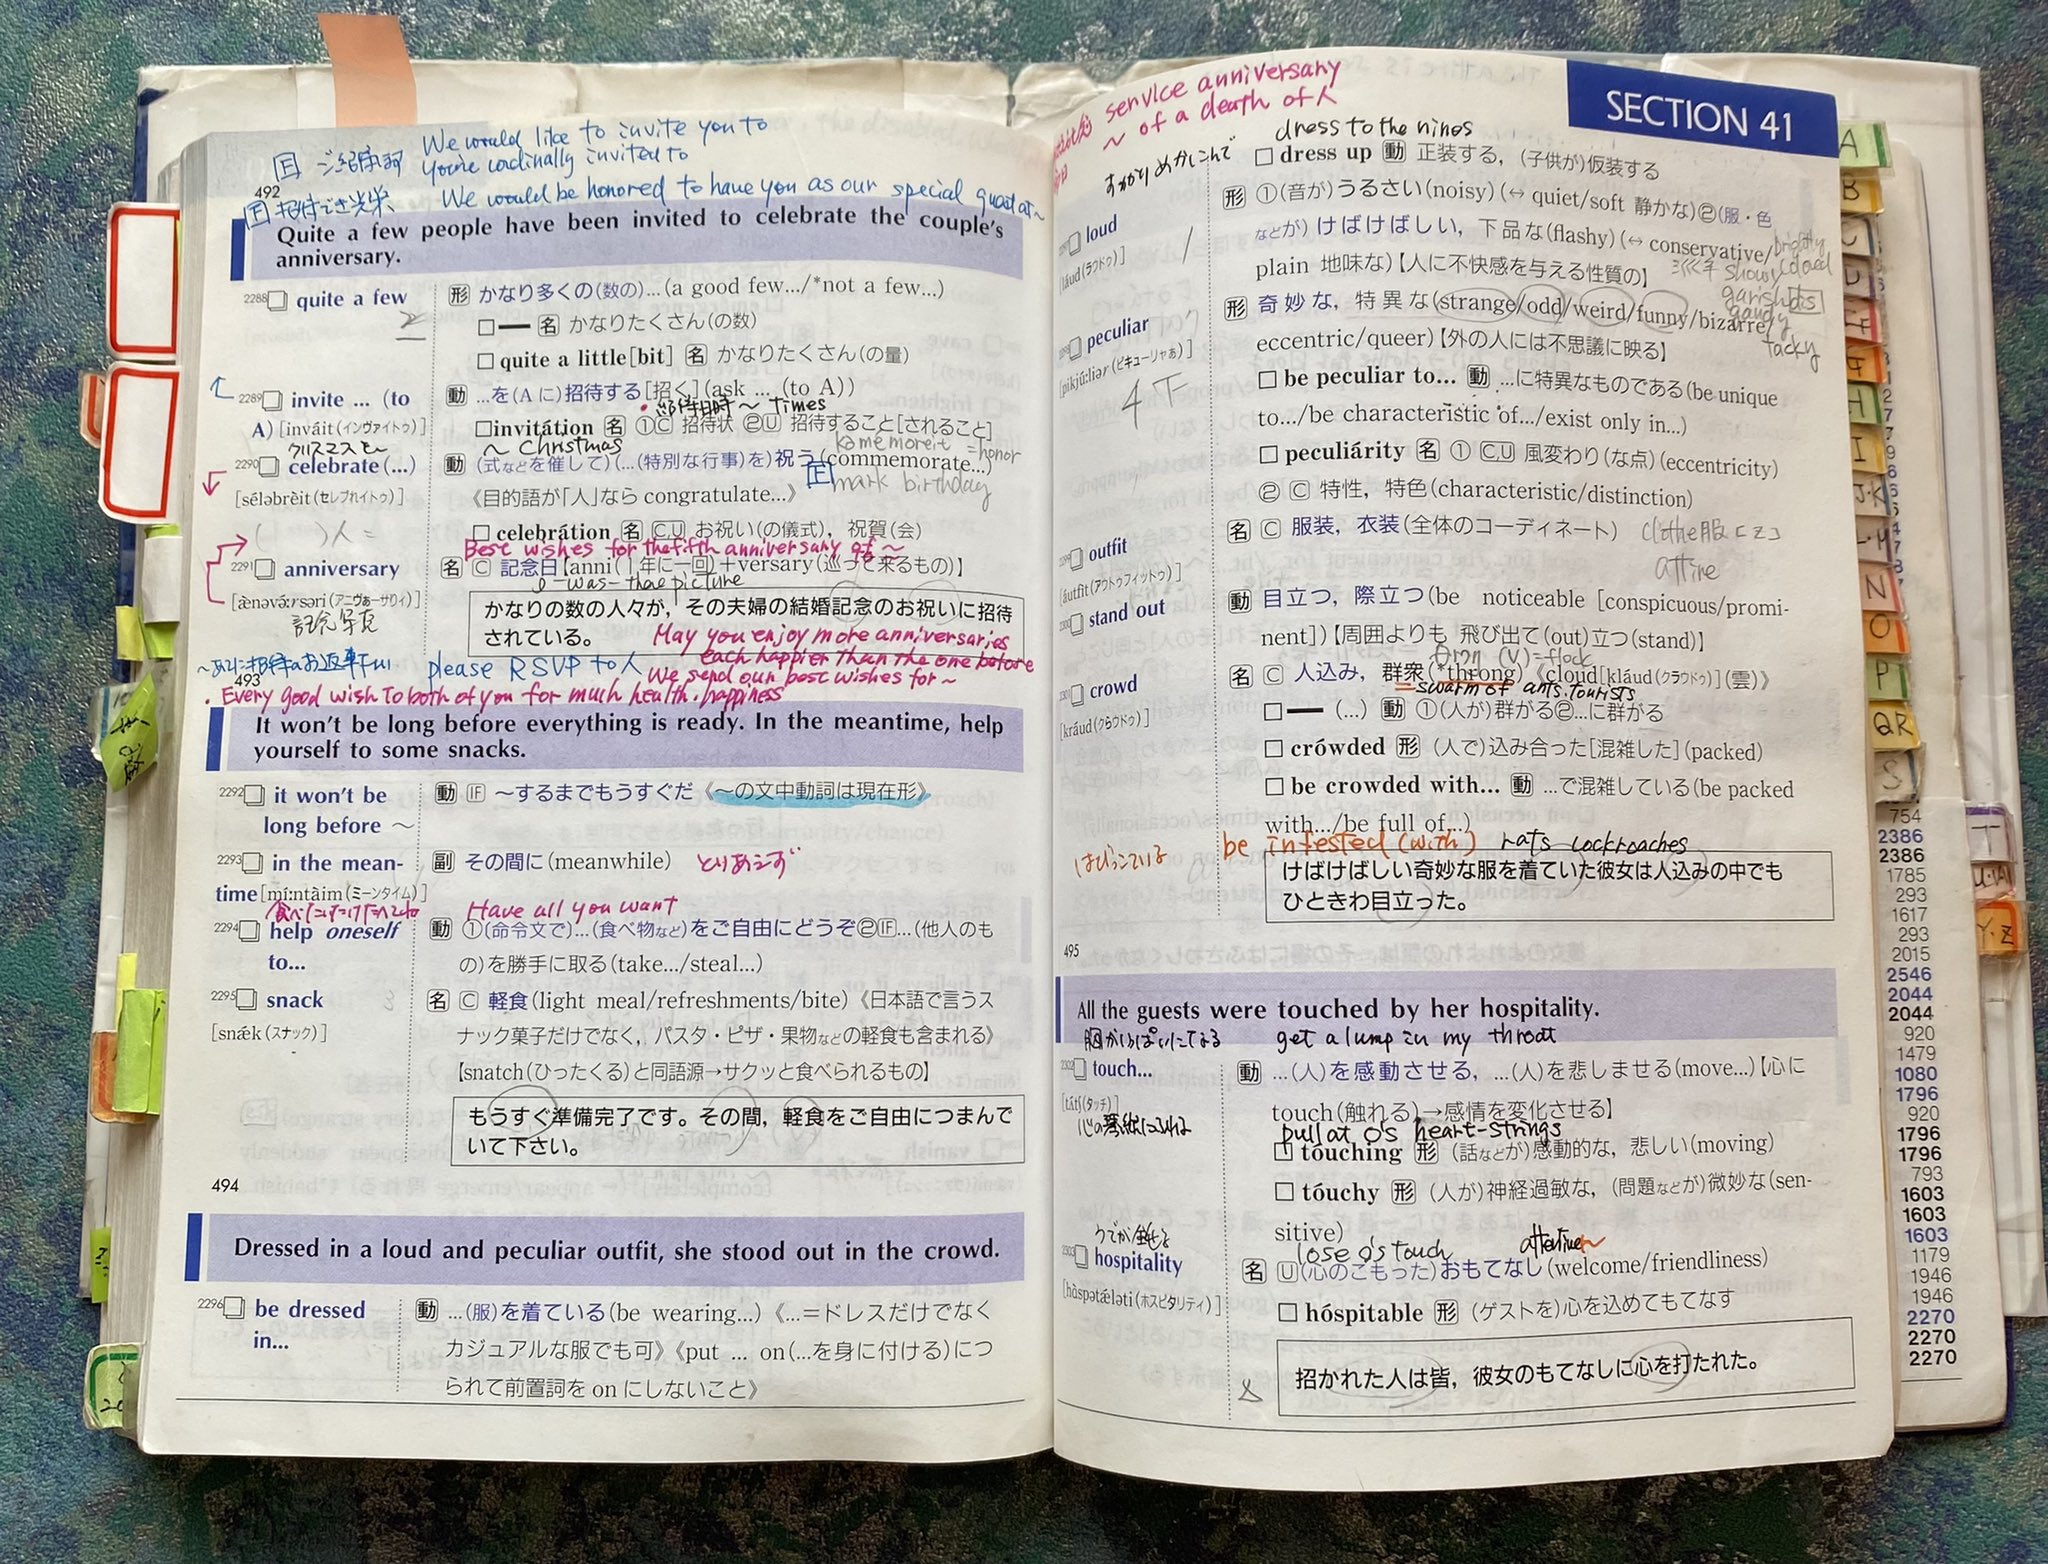 We would like to invite you to
You're cordinally invited to
We would be honored to have you as our special guest at~
492
Quite a few people have been invited to celebrate the couple's
anniversary.
2288 quite a few
形 かなり多くの(数の)…(a good few…/*not a few…)
□━ 名 かなりたくさん(の数)
□ quite a little[bit] 名 かなりたくさん(の量)
2289 invite … (to
A) [inváit(インヴァイトゥ)]
動 …を(Aに)招待する[招く](ask … (to A))
~ times
□invitátion 名 ①C 招待状 ②U 招待すること[されること]
~ Christmas
2290 celebrate (…)
[séləbrèit(セレブれイトゥ)]
動 (式などを催して)(…(特別な行事)を)祝う(commemorate…)
=honor
《目的語が「人」なら congratulate…》
mark birthday
( )人=
□ celebrátion 名 C,U お祝い(の儀式), 祝賀(会)
Best wishes for the fifth anniversary of ~
2291 anniversary
[æ̀nəvə́ːrsəri(アニヴぁーサりィ)]
名 C 記念日【anni(1年に一回)+versary(巡って来るもの)】
かなりの数の人々が, その夫婦の結婚記念のお祝いに招待
されている。
May you enjoy more anniversaries
each happier than the one before
please RSVP to人
We send our best wishes for ~
493
・Every good wish to both of you for much health.happiness
It won't be long before everything is ready. In the meantime, help
yourself to some snacks.
2292 it won't be
long before ～
動 IF ～するまでもうすぐだ《～の文中動詞は現在形》
2293 in the mean-
time[míːntàim(ミーンタイム)]
副 その間に(meanwhile)
とりあえず
Have all you want
2294 help oneself
to…
動 ①(命令文で)…(食べ物など)をご自由にどうぞ②IF…(他人のも
の)を勝手に取る(take…/steal…)
2295 snack
3
[snǽk(スナック)]
名 C 軽食(light meal/refreshments/bite)《日本語で言うス
ナック菓子だけでなく, パスタ・ピザ・果物などの軽食も含まれる》
【snatch(ひったくる)と同語源→サクッと食べられるもの】
もうすぐ準備完了です。その間, 軽食をご自由につまんで
いて下さい。
494
Dressed in a loud and peculiar outfit, she stood out in the crowd.
2296 be dressed
in…
動 …(服)を着ている(be wearing…)《…=ドレスだけでなく
カジュアルな服でも可》《put … on(…を身に付ける)につ
られて前置詞を on にしないこと》
service anniversary
~ of a death of 人
SECTION 41
dress to the nines
□ dress up 動 正装する, (子供が)仮装する
loud
[láud(ラウドゥ)]
形 ①(音が)うるさい(noisy)(↔ quiet/soft 静かな)②(服・色
などが)けばけばしい, 下品な(flashy)(↔ conservative/
plain 地味な)【人に不快感を与える性質の】
brightly
colored
showy
garish
gaudy
tacky
peculiar
[pikjúːliər(ピキューリャぁ)]
形 奇妙な, 特異な(strange/odd/weird/funny/bizarre/
eccentric/queer)【外の人には不思議に映る】
□ be peculiar to… 動 …に特異なものである(be unique
to…/be characteristic of…/exist only in…)
□ peculiárity 名 ① C,U 風変わり(な点)(eccentricity)
② C 特性, 特色(characteristic/distinction)
outfit
[áutfit(アウトゥフィットゥ)]
名 C 服装, 衣装(全体のコーディネート)
attire
2300 stand out
動 目立つ, 際立つ(be noticeable [conspicuous/promi-
nent])【周囲よりも 飛び出て(out)立つ(stand)】
(V)=flock
2301 crowd
[kráud(クらウドゥ)]
名 C 人込み, 群衆(*throng)《cloud[kláud(クラウドゥ)](雲)》
=swarm of ants.tourists
□━ (…) 動 ①(人が)群がる②…に群がる
□ crówded 形 (人で)込み合った[混雑した](packed)
□ be crowded with… 動 …で混雑している(be packed
with…/be full of…)
はびこっている be infested (with) rats cockroaches
けばけばしい奇妙な服を着ていた彼女は人込みの中でも
ひときわ目立った。
495
All the guests were touched by her hospitality.
get a lump in my throat
2302 touch…
[tʌ́tʃ(タッチ)]
動 …(人)を感動させる, …(人)を悲しませる(move…)【心に
touch(触れる)→感情を変化させる】
pull at o's heart-strings
□ tóuching 形 (話などが)感動的な, 悲しい(moving)
□ tóuchy 形 (人が)神経過敏な, (問題などが)微妙な(sen-
sitive)
lose o's touch
2303 hospitality
[hɑ̀spətǽləti(ホスピタリティ)]
名 U(心のこもった)おもてなし(welcome/friendliness)
□ hóspitable 形 (ゲストを)心を込めてもてなす
招かれた人は皆, 彼女のもてなしに心を打たれた。
A
B
D
H
I
J・K
N
O
P
QR
S
T
Y・Z
754
2386
2386
1785
293
1617
293
2015
2546
2044
2044
920
1479
1080
1796
920
1796
1796
793
1603
1603
1603
1179
1946
1946
2270
2270
2270